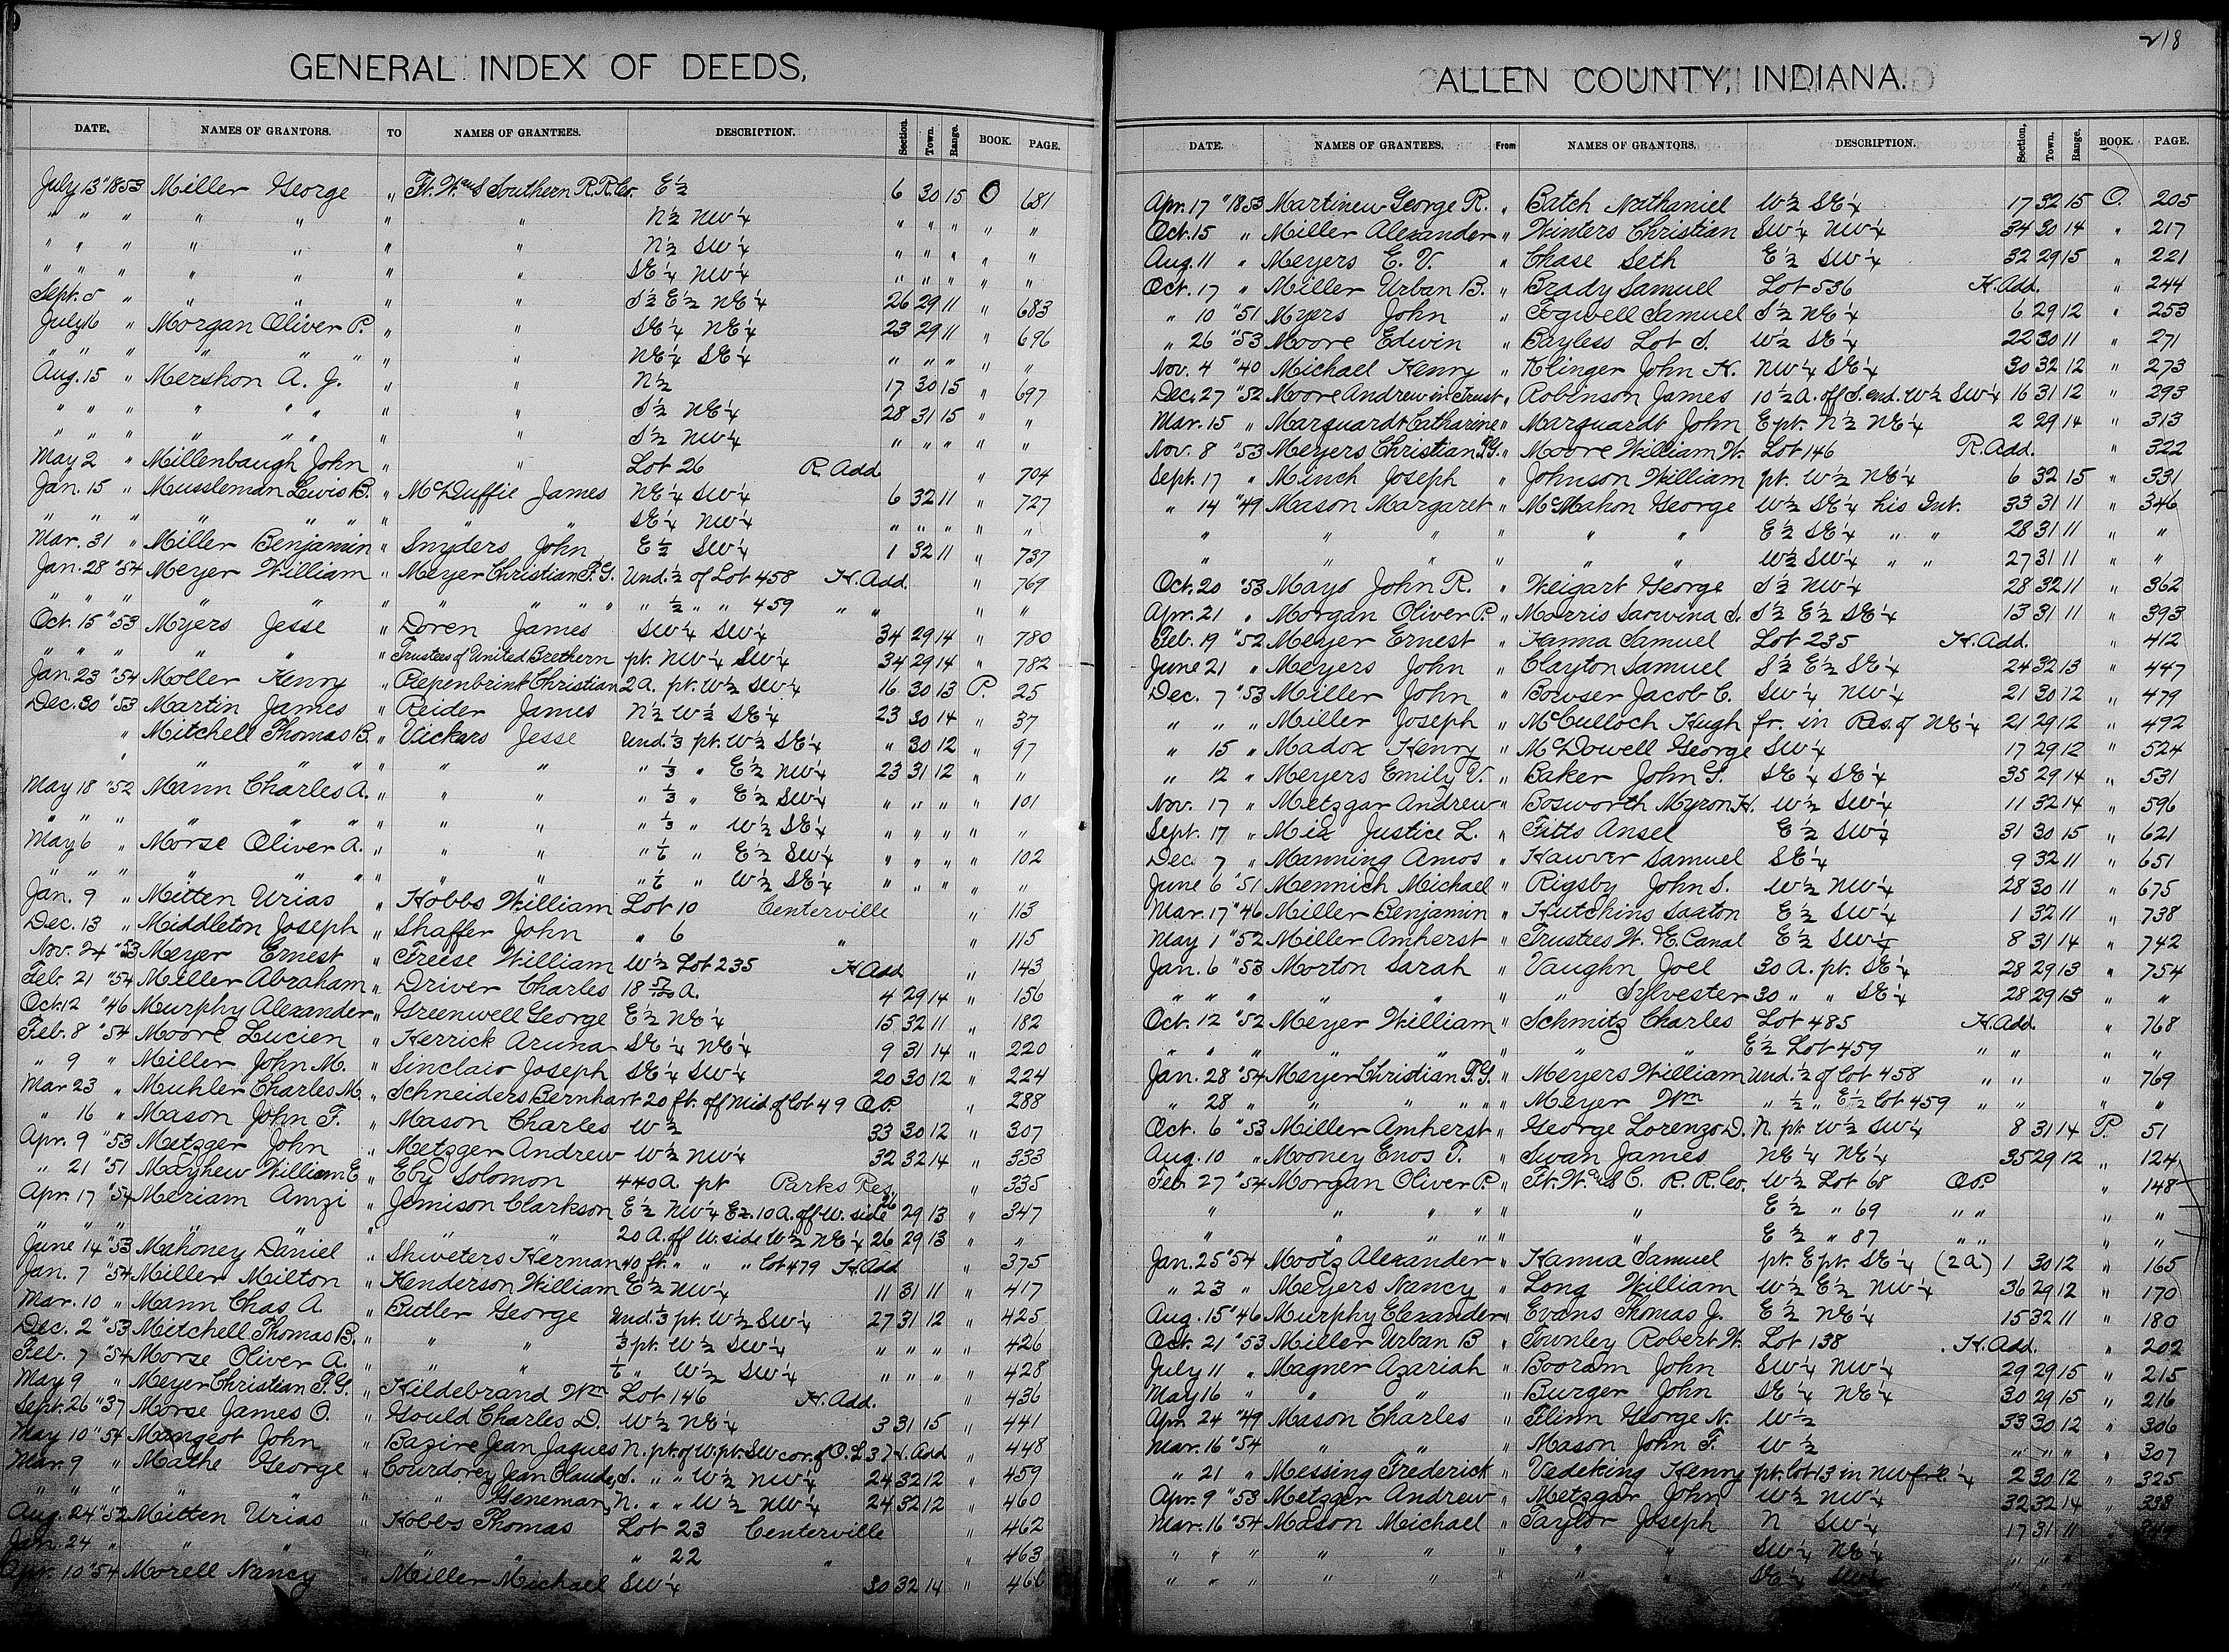 GENERAL INDEX OF DEEDS,
DATE. NAMES OF GRANTORS. TO NAMES OF GRANTEES. DESCRIPTION. Section. Town. Range. BOOK. PAGE.
July 13 "1853 Miller George " Ft. W. & Southern R.R.Co. E½ 6 30 15 O 681
" " " " " " " N½ NW¼ " " " " "
" " " " " " " N½ SW¼ " " " " "
" " " " " " " SE¼ NW¼ " " " " "
Sept. 5 " " " " " S½ E½ NE¼ 26 29 11 " 683
July 16 " Morgan Oliver P. " " SE¼ NE¼ 23 29 11 " 696
" " " " " " " " NE¼ SE¼ " " " " "
Aug. 15 " Mershon A. J. " " N½ 17 30 15 " 697
" " " " " " " " S½ NE¼ 28 31 15 " "
" " " " " " " " S½ NW¼ " " " " "
May 2 " Millenbaugh John " " Lot 26 R. Add " 704
Jan. 15 " Mussleman Lewis B. " McDuffie James NE¼ SW¼ 6 32 11 " 727
" " " " " " " " " SE¼ NW¼ " " " " "
Mar. 31 " Miller Benjamin " Snyders John E½ SW¼ 1 32 11 " 737
Jan. 28 "54 Meyer William " Meyer Christian F.G. Und. ½ of Lot 458 H. Add. " 769
" " " " " " " " " " " ½ " " 459 " " " "
Oct. 15 "53 Myers Jesse " Doren James SW¼ SW¼ 34 29 14 " 780
" " " " " " Trustees of United Brethern pt. NW¼ SW¼ 34 29 14 " 782
Jan. 23 "54 Moller Henry " Piepenbrink Christian 2 A. pt. W½ SW¼ 16 30 13 P. 25
Dec. 30 "53 Martin James " Reider James N½ W½ SE¼ 23 30 14 " 37
" Mitchell Thomas B. " Vickars Jesse Und. ⅓ pt. W½ SE¼ " 30 12 " 97
" " " " " " " " ⅓ " E½ NW¼ 23 31 12 " "
May 18 "52 Mann Charles A. " " " " ⅓ " E½ SW¼ " " " " 101
" " " " " " " " " " ⅓ " W½ SE¼ " " " " "
May 6 " Morse Oliver A. " " " " ⅙ " E½ SW¼ " " " " 102
" " " " " " " " " " ⅙ " W½ SE¼ " " " " "
Jan. 9 " Mitten Urias " Hobbs William Lot 10 Centerville " 113
Dec. 13 " Middleton Joseph " Shaffer John " 6 " " 115
Nov. 24 "53 Meyer Ernest " Freese William W½ Lot 235 H Add " 143
Feb. 21 "54 Miller Abraham " Driver Charles 18 A. 4 29 14 " 156
Oct. 12 "46 Murphy Alexander " Greenwell George E½ NE¼ 15 32 11 " 182
Feb. 8 "54 Moore Lucien " Herrick Aruna SE¼ NE¼ 9 31 14 " 220
" 9 " Miller John M. " Sinclair Joseph SE¼ SW¼ 20 30 12 " 224
Mar 23 " Muhler Charles M. " Schneiders Bernhart 20 ft. off Mid. of Lot 49 O.P. " 288
" 16 " Mason John F. " Mason Charles W½ 33 30 12 " 307
Apr. 9 "53 Metzger John " Metzger Andrew W½ NW¼ 32 32 14 " 333
" 21 "51 Mayhew William E. " Eby Solomon 440 A. pt Parks Res. " 335
Apr. 17 "54 Meriam Amzi " Jamison Clarkson E½ NW¼ Ex. 10 A. off W. side 26 29 13 " 347
" " " " " " " " 20 A. off W. side W½ NE¼ 26 29 13 " "
June 14 "53 Mahoney Daniel " Shweters Herman 40 ft. " " " lot 479 H. Add " 375
Jan. 7 "54 Miller Milton " Henderson William E½ NW¼ 11 31 11 " 417
Mar. 10 " Mann Chas A. " Butler George Und. ⅓ pt. W½ SW¼ 27 31 12 " 425
Dec. 2 "53 Mitchell Thomas B. " " " ⅓ pt. W½ SW¼ " " " " 426
Feb. 7 "54 Morse Oliver A. " " " ⅙ " W½ SW¼ " " " " 428
May 9 " Meyer Christian F. G. " Hildebrand Wm Lot 146 H. Add. " 436
Sept. 26 "37 Morse James O. " Gould Charles D. W½ NE¼ 3 31 15 " 441
May 10 "54 Mangeot John " Bazire Jean Jaques N. pt. of W. pt. SW cor. of O. L. 37 H. Add " 448
Mar. 9 " Mathe George " Courdorey Jean Claude, S. " " W½ NW¼ 24 32 12 " 459
" " " " " " " Geneman, N. " " W½ NW¼ 24 32 12 " 460
Aug. 24 "52 Mitten Urias " Hobbs Thomas Lot 23 Centerville " 462
Jan. 24 " " " " " " " 22 " " 463
Apr. 10 "54 Morell Nancy " Miller Michael SW¼ 30 32 14 " 466
218
ALLEN COUNTY, INDIANA.
DATE. NAMES OF GRANTEES. From NAMES OF GRANTORS. DESCRIPTION. Section. Town. Range. BOOK. PAGE.
Apr. 17 "1853 Martinew George R. " Batch Nathaniel W½ SE¼ 17 32 15 O. 205
Oct. 15 " Miller Alexander " Winters Christian SW¼ NW¼ 34 30 14 " 217
Aug. 11 " Meyers E. V. " Chase Seth E½ SW¼ 32 29 15 " 221
Oct. 17 " Miller Urban B. " Brady Samuel Lot 536 H. Add. " 244
" 10 "51 Myers John " Fogwell Samuel S½ NE¼ 6 29 12 " 253
" 26 "53 Moore Edwin " Bayless Lot S. W½ SE¼ 22 30 11 " 271
Nov. 4 "40 Michael Henry " Klinger John H. NW¼ SE¼ 30 32 12 " 273
Dec. 27 "52 Moore Andrew in Trust " Robinson James 10½ A. off S. end. W½ SW¼ 16 31 12 " 293
Mar. 15 " Marquardt Catharine " Marquardt John E pt. N½ NE¼ 2 29 14 " 313
Nov. 8 "53 Meyers Christian F.G. " Moore William W. Lot 146 R. Add. " 322
Sept. 17 " Minch Joseph " Johnson William pt. W½ NE¼ 6 32 15 " 331
" 14 "49 Mason Margaret " McMahon George W½ SE¼ his Int. 33 31 11 " 346
" " " " " " E½ SE¼ " " 28 31 11 " "
" " " " " " W½ SW¼ " " 27 31 11 " "
Oct. 20 "53 Mays John R. " Weigart George S½ NW¼ 28 32 11 " 362
Apr. 21 " Morgan Oliver P. " Morris Sarwina S. S½ E½ SE¼ 13 31 11 " 393
Feb. 19 "52 Meyer Ernest " Hanna Samuel Lot 235 H. Add. " 412
June 21 " Meyers John " Clayton Samuel S½ E½ SE¼ 24 32 13 " 447
Dec. 7 "53 Miller John " Bowser Jacob C. SW¼ NW¼ 21 30 12 " 479
" " " Miller Joseph " McCulloch Hugh fr. in Res. of NE¼ 21 29 12 " 492
" 15 " Madox Henry " McDowell George SW¼ 17 29 12 " 524
" 12 " Meyers Emily V. " Baker John S. SE¼ SE¼ 35 29 14 " 531
Nov. 17 " Metzgar Andrew " Bosworth Myron H. W½ SW¼ 11 32 14 " 596
Sept. 17 " Mix Justice L. " Fitts Ansel E½ SW¼ 31 30 15 " 621
Dec. 7 " Manning Amos " Hawver Samuel SE¼ 9 32 11 " 651
June 6 "51 Mennich Michael " Rigsby John S. W½ NW¼ 28 30 11 " 675
Mar. 17 "46 Miller Benjamin " Hutchins Saaton E½ SW¼ 1 32 11 " 738
May 1 "52 Miller Amherst " Trustees W. & E. Canal E½ SW¼ 8 31 14 " 742
Jan. 6 "53 Morton Sarah " Vaughn Joel 30 A. pt. SE¼ 28 29 13 " 754
" " " " " " " Sylvester 30 " " SE¼ 28 29 13 " "
Oct. 12 "52 Meyer William " Schmitz Charles Lot 485 H. Add. " 768
" " " " " " " " E½ Lot 459 " " " "
Jan. 28 "54 Meyer Christian F.G. " Meyers William Und. ½ of lot 458 " " " 769
" 28 " " " " " " Meyer Wm " ½ " E½ lot 459 " " " "
Oct. 6 "53 Miller Amherst " George Lorenzo D. N. pt. W½ SW¼ 8 31 14 P. 51
Aug. 10 " Mooney Enos T. " Swan James NE¼ NE¼ 35 29 12 " 124
Feb. 27 "54 Morgan Oliver P. " Ft. W. & C. R. R. Co. W½ Lot 68 O.P. " 148
" " " " " " E½ " 69 " " " "
" " " " " " E½ " 87 " " " "
Jan. 25 "54 Mootz Alexander " Hanna Samuel pt. E pt. SE¼ (2 a) 1 30 12 " 165
" 23 " Meyers Nancy " Long William W½ E½ NW¼ 36 29 12 " 170
Aug. 15 "46 Murphy Elexander " Evans Thomas J. E½ NE¼ 15 32 11 " 180
Oct. 21 "53 Miller Urban B " Townley Robert W. Lot 138 H. Add. " 202
July 11 " Magner Azariah " Booram John SW¼ NW¼ 29 29 15 " 215
May 16 " " " " Burger John SE¼ NE¼ 30 29 15 " 216
Apr. 24 "49 Mason Charles " Flinn George N. W½ 33 30 12 " 306
Mar. 16 "54 " " " Mason John F. W½ " " " " 307
" 21 " Messing Frederick " Vedeking Henry pt. lot 13 in NW frl ¼ 2 30 12 " 325
Apr. 9 "53 Metzger Andrew " Metzgar John W½ NW¼ 32 32 14 " 333
Mar. 16 "54 Mason Michael " Taylor Joseph N SW¼ 17 31 11 "
" " " " " " " " SW¼ NE¼ " " "
" " " " " " " " SE¼ " " "